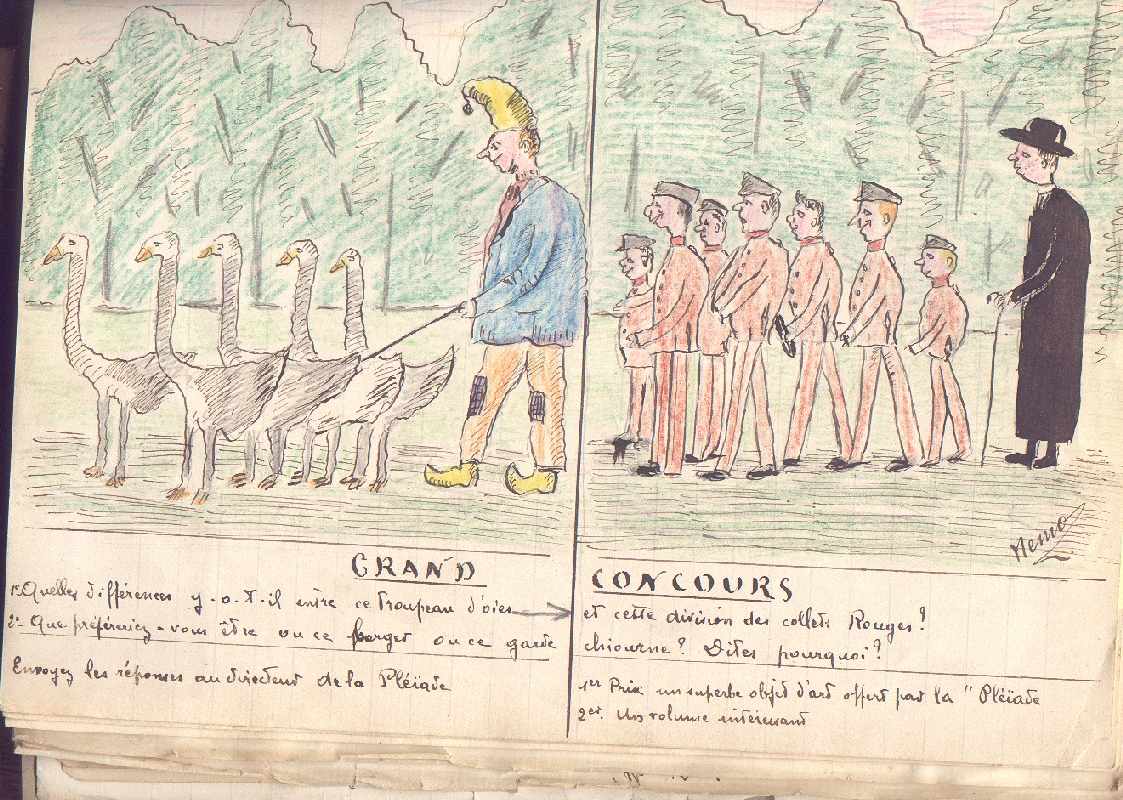 Nemo
GRAND CONCOURS
1º Quelles différences y-a-t-il entre ce Troupeau d'oies et cette division des collets Rouges?
2º Que préféreriez-vous être ou ce berger ou ce garde chiourne? Dites pourquoi?
Envoyez les réponses au directeur de la Pléiade
1er Prix un superbe objet d'art offert par la "Pléiade
2er. Un volume intéressant